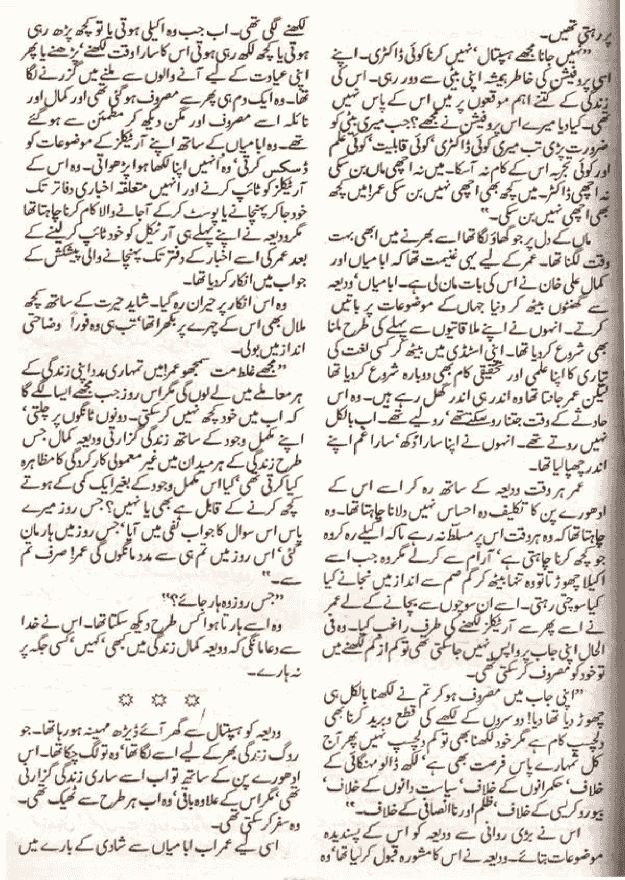 پر رہتی تھیں۔
”نہیں جانا مجھے ہسپتال‘ نہیں کرنا کوئی ڈاکٹری۔ اپنے
اسی پروفیشن کی خاطر ہمیشہ اپنی بیٹی سے دور رہی۔ اس کی
زندگی کے کتنے اہم موقعوں پر میں اس کے پاس نہیں
تھی۔ کیا دیا میرے اس پروفیشن نے مجھے؟ جب میری بیٹی کو
ضرورت پڑی تب میری کوئی ڈاکٹری‘ کوئی قابلیت‘ کوئی علم
اور کوئی تجربہ اس کے کام نہ آسکا۔ میں نہ اچھی ماں بن سکی
نہ اچھی ڈاکٹر۔ میں کچھ بھی اچھی نہیں بن سکی عمر! میں کچھ
بھی اچھی نہیں بن سکی۔“
ماں کے دل پر جو گھاؤ لگا تھا اسے بھرنے میں ابھی بہت
وقت لگنا تھا۔ عمر کے لیے یہی غنیمت تھا کہ ابا میاں اور
کمال علی خان نے اس کی بات مان لی ہے۔ ابا میاں‘ ودیعہ
سے گھنٹوں بیٹھ کر دنیا جہاں کے موضوعات پر باتیں
کرتے۔ انہوں نے اپنے ملاقاتیوں سے پہلے کی طرح ملنا
بھی شروع کردیا تھا۔ اپنی اسٹڈی میں بیٹھ کر کسی لغت کی
تیاری کا اپنا علمی اور تحقیقی کام بھی دوبارہ شروع کردیا تھا
لیکن عمر جانتا تھا وہ اندر ہی اندر گھل رہے ہیں۔ وہ اس
حادثے کے وقت جتنا رو سکتے تھے‘ رو لیے تھے۔ اب بالکل
نہیں روتے تھے۔ انہوں نے اپنا سارا دُکھ‘ سارا غم اپنے
اندر چھپا لیا تھا۔
عمر ہر وقت ودیعہ کے ساتھ رہ کر اسے اس کے
ادھورے پن کا تکلیف دہ احساس نہیں دلانا چاہتا تھا۔ وہ
چاہتا تھا کہ وہ ہر وقت اس پر مسلط نہ رہے تاکہ اکیلے رہ کر وہ
جو کچھ کرنا چاہتی ہے‘ آرام سے کرلے مگر وہ جب اسے
اکیلا چھوڑتا تو وہ تنہا بیٹھ کر گم صم سے انداز میں نجانے کیا
کیا سوچتی رہتی۔ اسے ان سوچوں سے بچانے کے لے عمر
نے اسے پھر سے آرٹیکلز لکھنے کی طرف راغب کیا۔ وہ فی
الحال اپنی جاب پر واپس نہیں جاسکتی تھی تو کم از کم لکھنے میں
تو خود کو مصروف کرسکتی تھی۔
”اپنی جاب میں مصروف ہو کر تم نے لکھنا بالکل ہی
چھوڑ دیا تھا دیا! دوسروں کے لکھے کی قطع و برید کرنا بھی
دلچسپ کام ہے مگر خود لکھنا بھی تو کم دلچسپ نہیں پھر آج
کل تمہارے پاس فرصت بھی ہے‘ لکھ ڈالو مہنگائی کے
خلاف‘ حکمرانوں کے خلاف‘ سیاست دانوں کے خلاف‘
بیوروکریسی کے خلاف‘ ظلم اور ناانصافی کے خلاف۔“
اس نے بڑی روانی سے ودیعہ کو اس کے پسندیدہ
موضوعات بتائے۔ ودیعہ نے اس کا مشورہ قبول کرلیا تھا‘ وہ
لکھنے لگی تھی۔ اب جب وہ اکیلی ہوتی یا تو کچھ پڑھ رہی
ہوتی یا کچھ لکھ رہی ہوتی اس کا سارا وقت لکھنے‘ پڑھنے یا پھر
اپنی عیادت کے لیے آنے والوں سے ملنے میں گزرنے لگا
تھا۔ وہ ایک دم ہی پھر سے مصروف ہوگئی تھی اور کمال اور
نائلہ اسے مصروف اور مگن دیکھ کر مطمئن سے ہو گئے
تھے۔ وہ ابا میاں کے ساتھ اپنے آرٹیکلز کے موضوعات کو
ڈسکس کرتی‘ وہ اُنہیں اپنا لکھا ہوا پڑھواتی۔ وہ اس کے
آرٹیکلز کو ٹائپ کرنے اور انہیں متعلقہ اخباری دفاتر تک
خود جاکر پہنچانے یا پوسٹ کرکے آجانے والا کام کرنا چاہتا تھا
مگر ودیعہ نے اپنے پہلے ہی آرٹیکل کو خود ٹائپ کرلینے کے
بعد عمر کی اسے اخبار کے دفتر تک پہنچانے والی پیشکش کے
جواب میں انکار کردیا تھا۔
وہ اس انکار پر حیران رہ گیا۔ شاید حیرت کے ساتھ کچھ
ملال بھی اس کے چہرے پر بکھرا تھا‘ تب ہی وہ فوراً وضاحتی
انداز میں بولی۔
”مجھے غلط مت سمجھو عمر! میں تمہاری مدد اپنی زندگی کے
ہر معاملے میں لے لوں گی مگر اس روز جب مجھے ایسا لگے گا
کہ اب میں خود کچھ نہیں کرسکتی۔ دونوں ٹانگوں پر چلتی‘
اپنے مکمل وجود کے ساتھ زندگی گزارتی ودیعہ کمال جس
طرح زندگی کے ہر میدان میں غیر معمولی کارکردگی کا مظاہرہ
کیا کرتی تھی‘ کیا اس مکمل وجود کے بغیر ایک کمی کے ہوتے
کچھ کرنے کے قابل ہے بھی یا نہیں؟ جس روز میرے
پاس اس سوال کا جواب نفی میں آیا‘ جس روز میں ہار مان
گئی‘ اس روز میں تم ہی سے مدد مانگوں گی عمر! صرف تم
سے۔“
”جس روز وہ ہار جائے؟“
وہ اسے ہارتا ہوا کس طرح دیکھ سکتا تھا۔ اس نے خدا
سے دعا مانگی کہ ودیعہ کمال زندگی میں کبھی‘ کہیں‘ کسی جگہ پر
نہ ہارے۔
☆ ☆ ☆
ودیعہ کو ہسپتال سے گھر آئے ڈیڑھ مہینہ ہو رہا تھا۔ جو
روگ زندگی بھر کے لیے اسے لگا تھا‘ وہ تو لگ چکا تھا۔ اس
ادھورے پن کے ساتھ تو اب اسے ساری زندگی گزارنی
تھی‘ مگر اس کے علاوہ باقی‘ وہ اب ہر طرح سے ٹھیک تھی۔
وہ سفر کرسکتی تھی۔
اسی لیے عمر اب ابا میاں سے شادی کے بارے میں